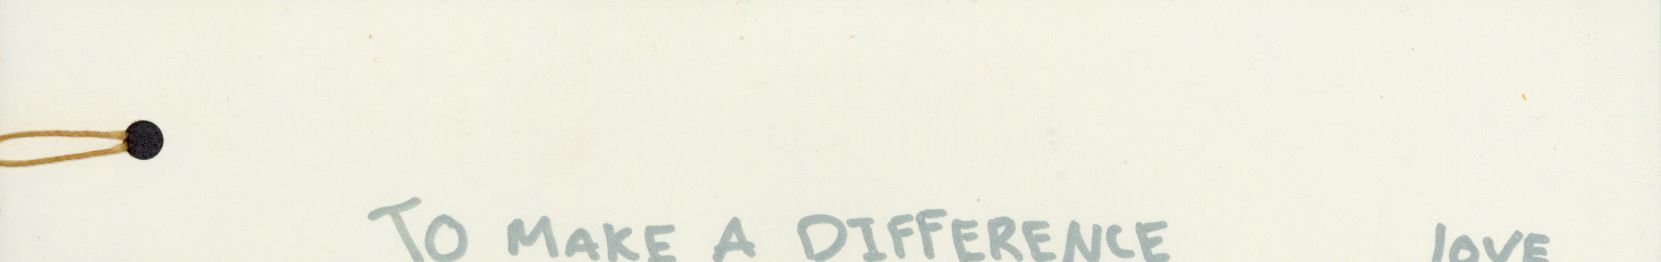 TO MAKE A DIFFERENCE love